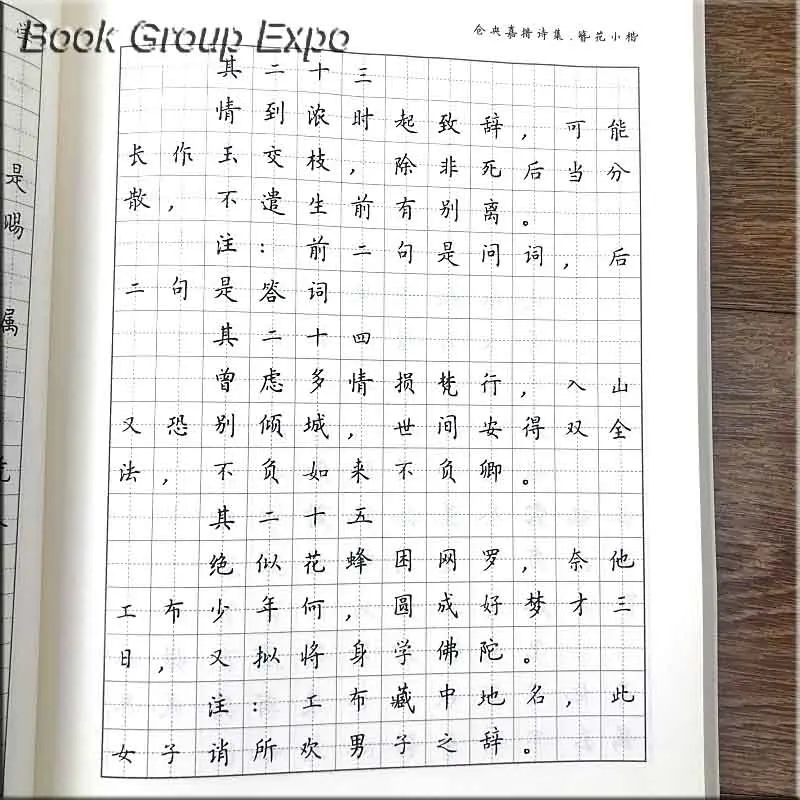 Book Group Expo
仓央嘉措诗集.簪花小楷
其二十三
情到浓时起致辞，可能
长作玉交枝，除非死后当分
散，不遣生前有别离。
注：前二句是问词，后
二句是答词
其二十四
曾虑多情损梵行，入山
又恐别倾城，世间安得双全
法，不负如来不负卿。
其二十五
绝似花蜂困网罗，奈他
工布少年何，圆成好梦才三
日，又拟将身学佛陀。
注：工布藏中地名，此
女子诮所欢男子之辞。
学
是
赐
属